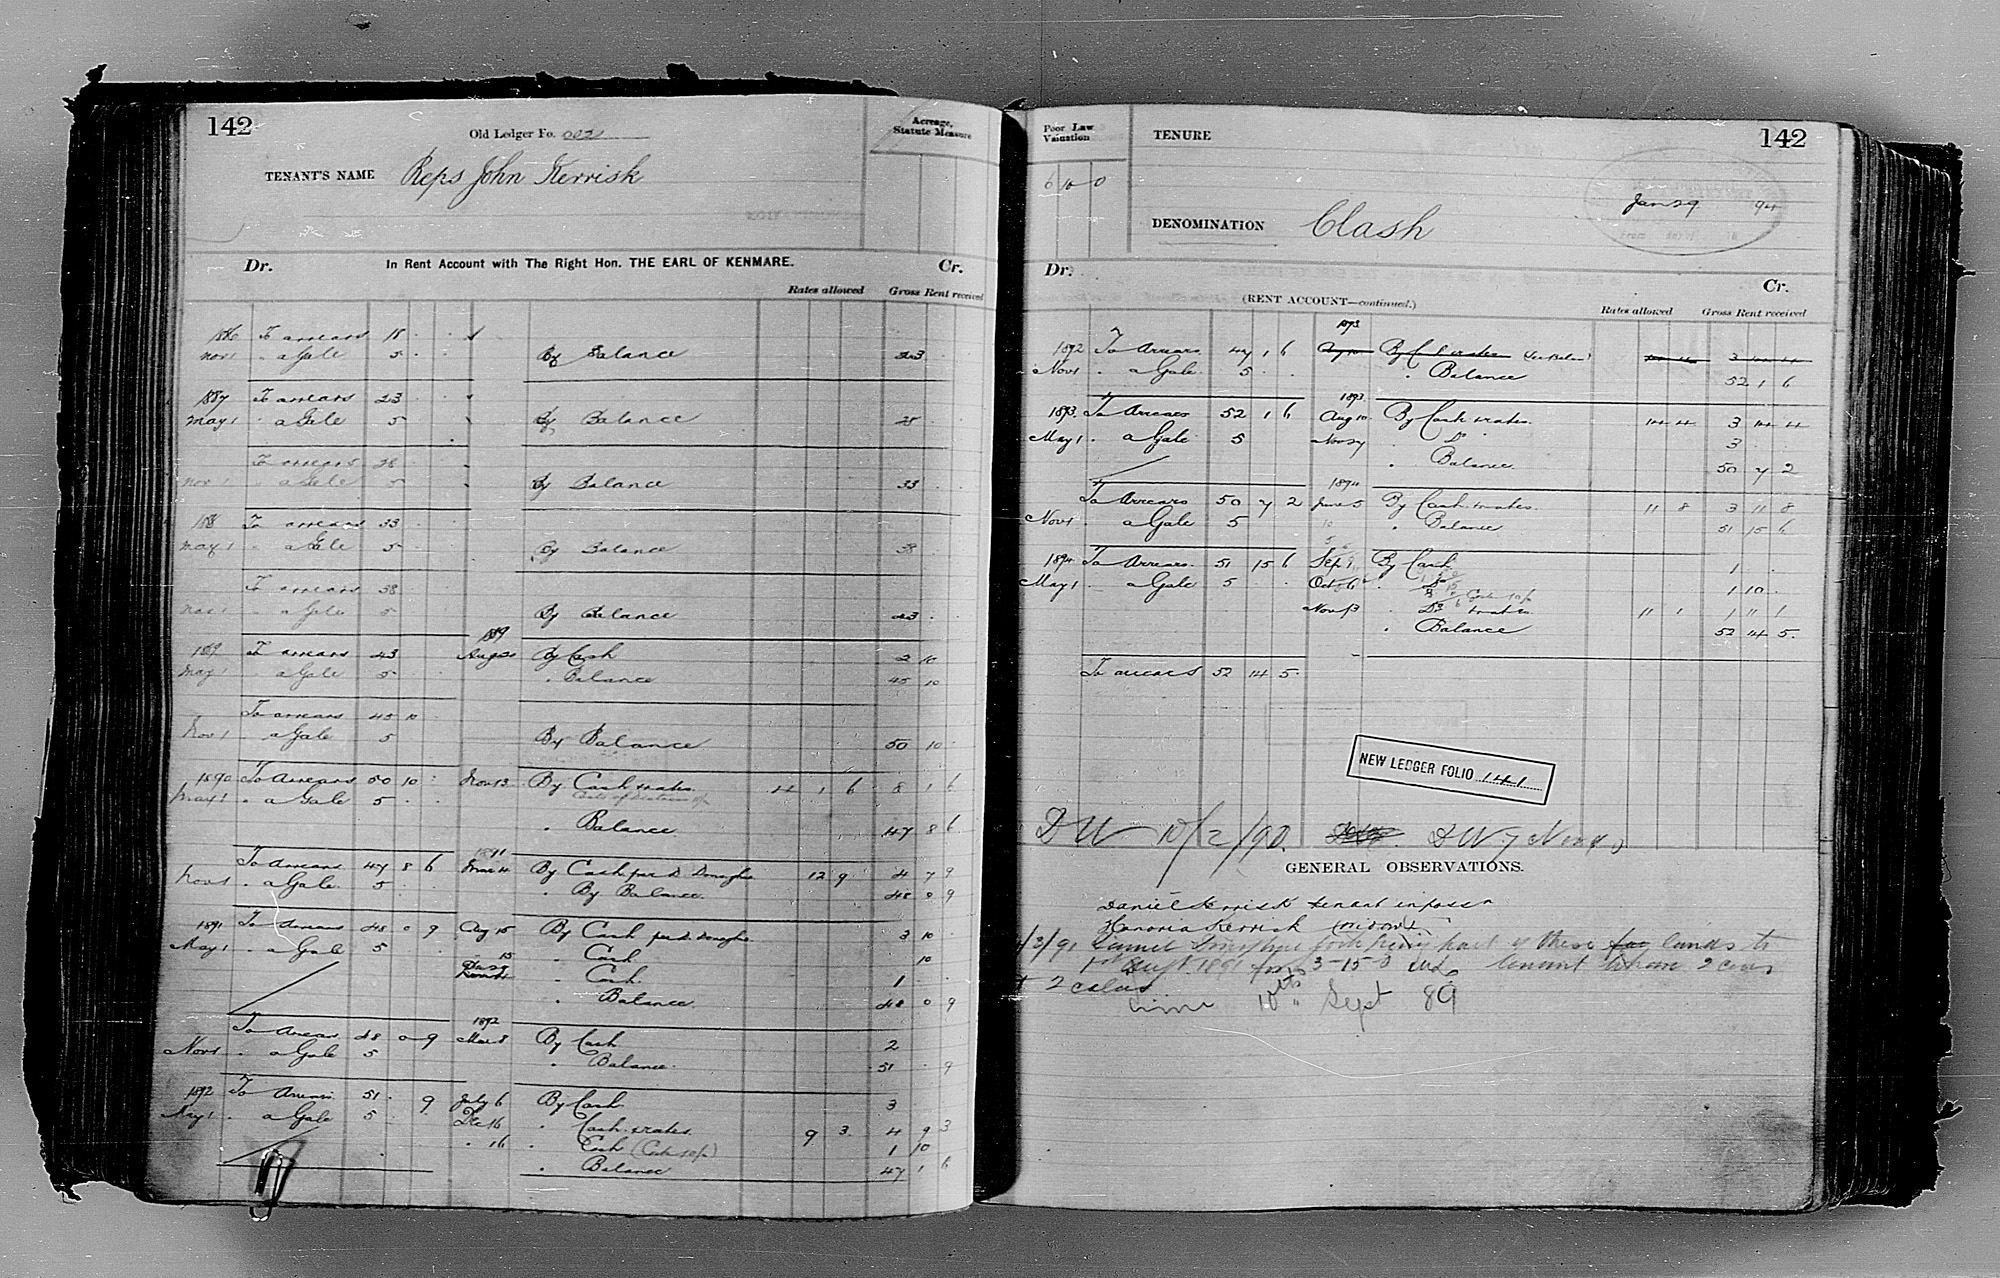 142
Old Ledger Fo.
Acreage, Statute Measure
TENANT'S NAME Reps John Kerrisk
Dr. In Rent Account with The Right Hon. THE EARL OF KENMARE. Cr.
Rates allowed Gross Rent received
1886 To arrears 18
Nov 1 " a Gale 5 By Balance 23
1887 To arrears 23
May 1 " a Gale 5 By Balance 28
To arrears 28
Nov 1 " a Gale 5 By Balance 33
188 To arrears 33
May 1 " a Gale 5 By Balance 38
To arrears 38
Nov 1 " a Gale 5 By Balance 43
1889
1889 To arrears 43 Aug By Cash 2 10
May 1 " a Gale 5 " Balance 45 10
To arrears 45 10
Nov 1 " a Gale 5 By Balance 50 10
1890 To Arrears 50 10 Nov 13 By Cash & rates 4 1 6 8 1 6
May 1 " a Gale 5
" Balance 47 8 6
1891
To Arrears 47 8 6 Mar 4 By Cash per D Donoghue 12 9 4 7 9
Nov 1 " a Gale 5 " By Balance 48 0 9
1891 To Arrears 48 0 9 Aug 15 By Cash per D. Donoghue 3 10
May 1 " a Gale 5 15 " Cash 10
" Cash 1
" Balance 48 0 9
1892
To Arrears 48 0 9 Mar 8 By Cash 2
Nov 1 " a Gale 5 " Balance 51 9
1892 To Arrears 51 9 July 6 By Cash 3
May 1 " a Gale 5 Dec 16 " Cash & rates 9 3 4 9 3
" 16 " Cash (Costs 10/-) 1 10
" Balance 47 1 6
Poor Law Valuation
6 10 0
TENURE
142
Jan 29 94
DENOMINATION Clash
Dr. Cr.
(RENT ACCOUNT—continued.)
Rates allowed Gross Rent received
1893
1892 To Arrears 47 1 6 By C & rates 3 14 4
Nov 1 " a Gale 5 " Balance 52 1 6
1893
1893 To Arrears 52 1 6 Aug 10 By Cash & rates 14 4 3 14 4
May 1 " a Gale 5 Nov 27 " Do 3
" Balance 50 7 2
1894
To Arrears 50 7 2 June 5 By Cash & rates 11 8 3 11 8
Nov 1 " a Gale 5 " Balance 51 15 6
1894 To Arrears 51 15 6 Sep 1 By Cash 1
May 1 " a Gale 5 Oct 6 " Do 1 10
Nov 13 " Do & rates 11 1 1 11 1
" Balance 52 14 5
To arrears 52 14 5
NEW LEDGER FOLIO 141
DW 10/2/90. DW
GENERAL OBSERVATIONS.
Daniel Kerrisk tenant in possn
Hanoria Kerrisk (widow)
/3/91 Daniel Donoghue took part of these lands to
1st Augt 1891 for 3-15-0 tenant
2 calves
10th Sept 89